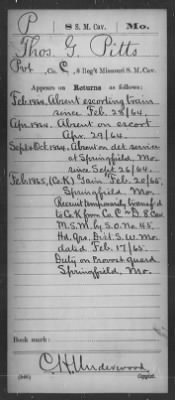 P 8 S. M. Cav. Mo.
Thos. G. Pitts
Pvt, Co. C, 8 Reg't Missouri S. M. Cav.
Appears on Returns as follows:
Feb. 1864, Absent escorting train
since Feb. 28/64.
Apr. 1864, Absent on escort
Apr. 29/64.
Sept & Oct. 1864, Absent on det. service
at Springfield, Mo.
since Sept. 26/64.
Feb. 1865, (Co. K) Gain Feb. 20/65,
Springfield, Mo.
Recruit temporarily transf'd
to Co. K from Co. C 8 Cav.
M.S.M. by S.O. No. 45.
Hd. Qrs. Dist. S.W. Mo.
dated Feb. 17/65.
Duty on Provost guard
Springfield, Mo.
Book mark:
C. H. Underwood
(546) Copyist.